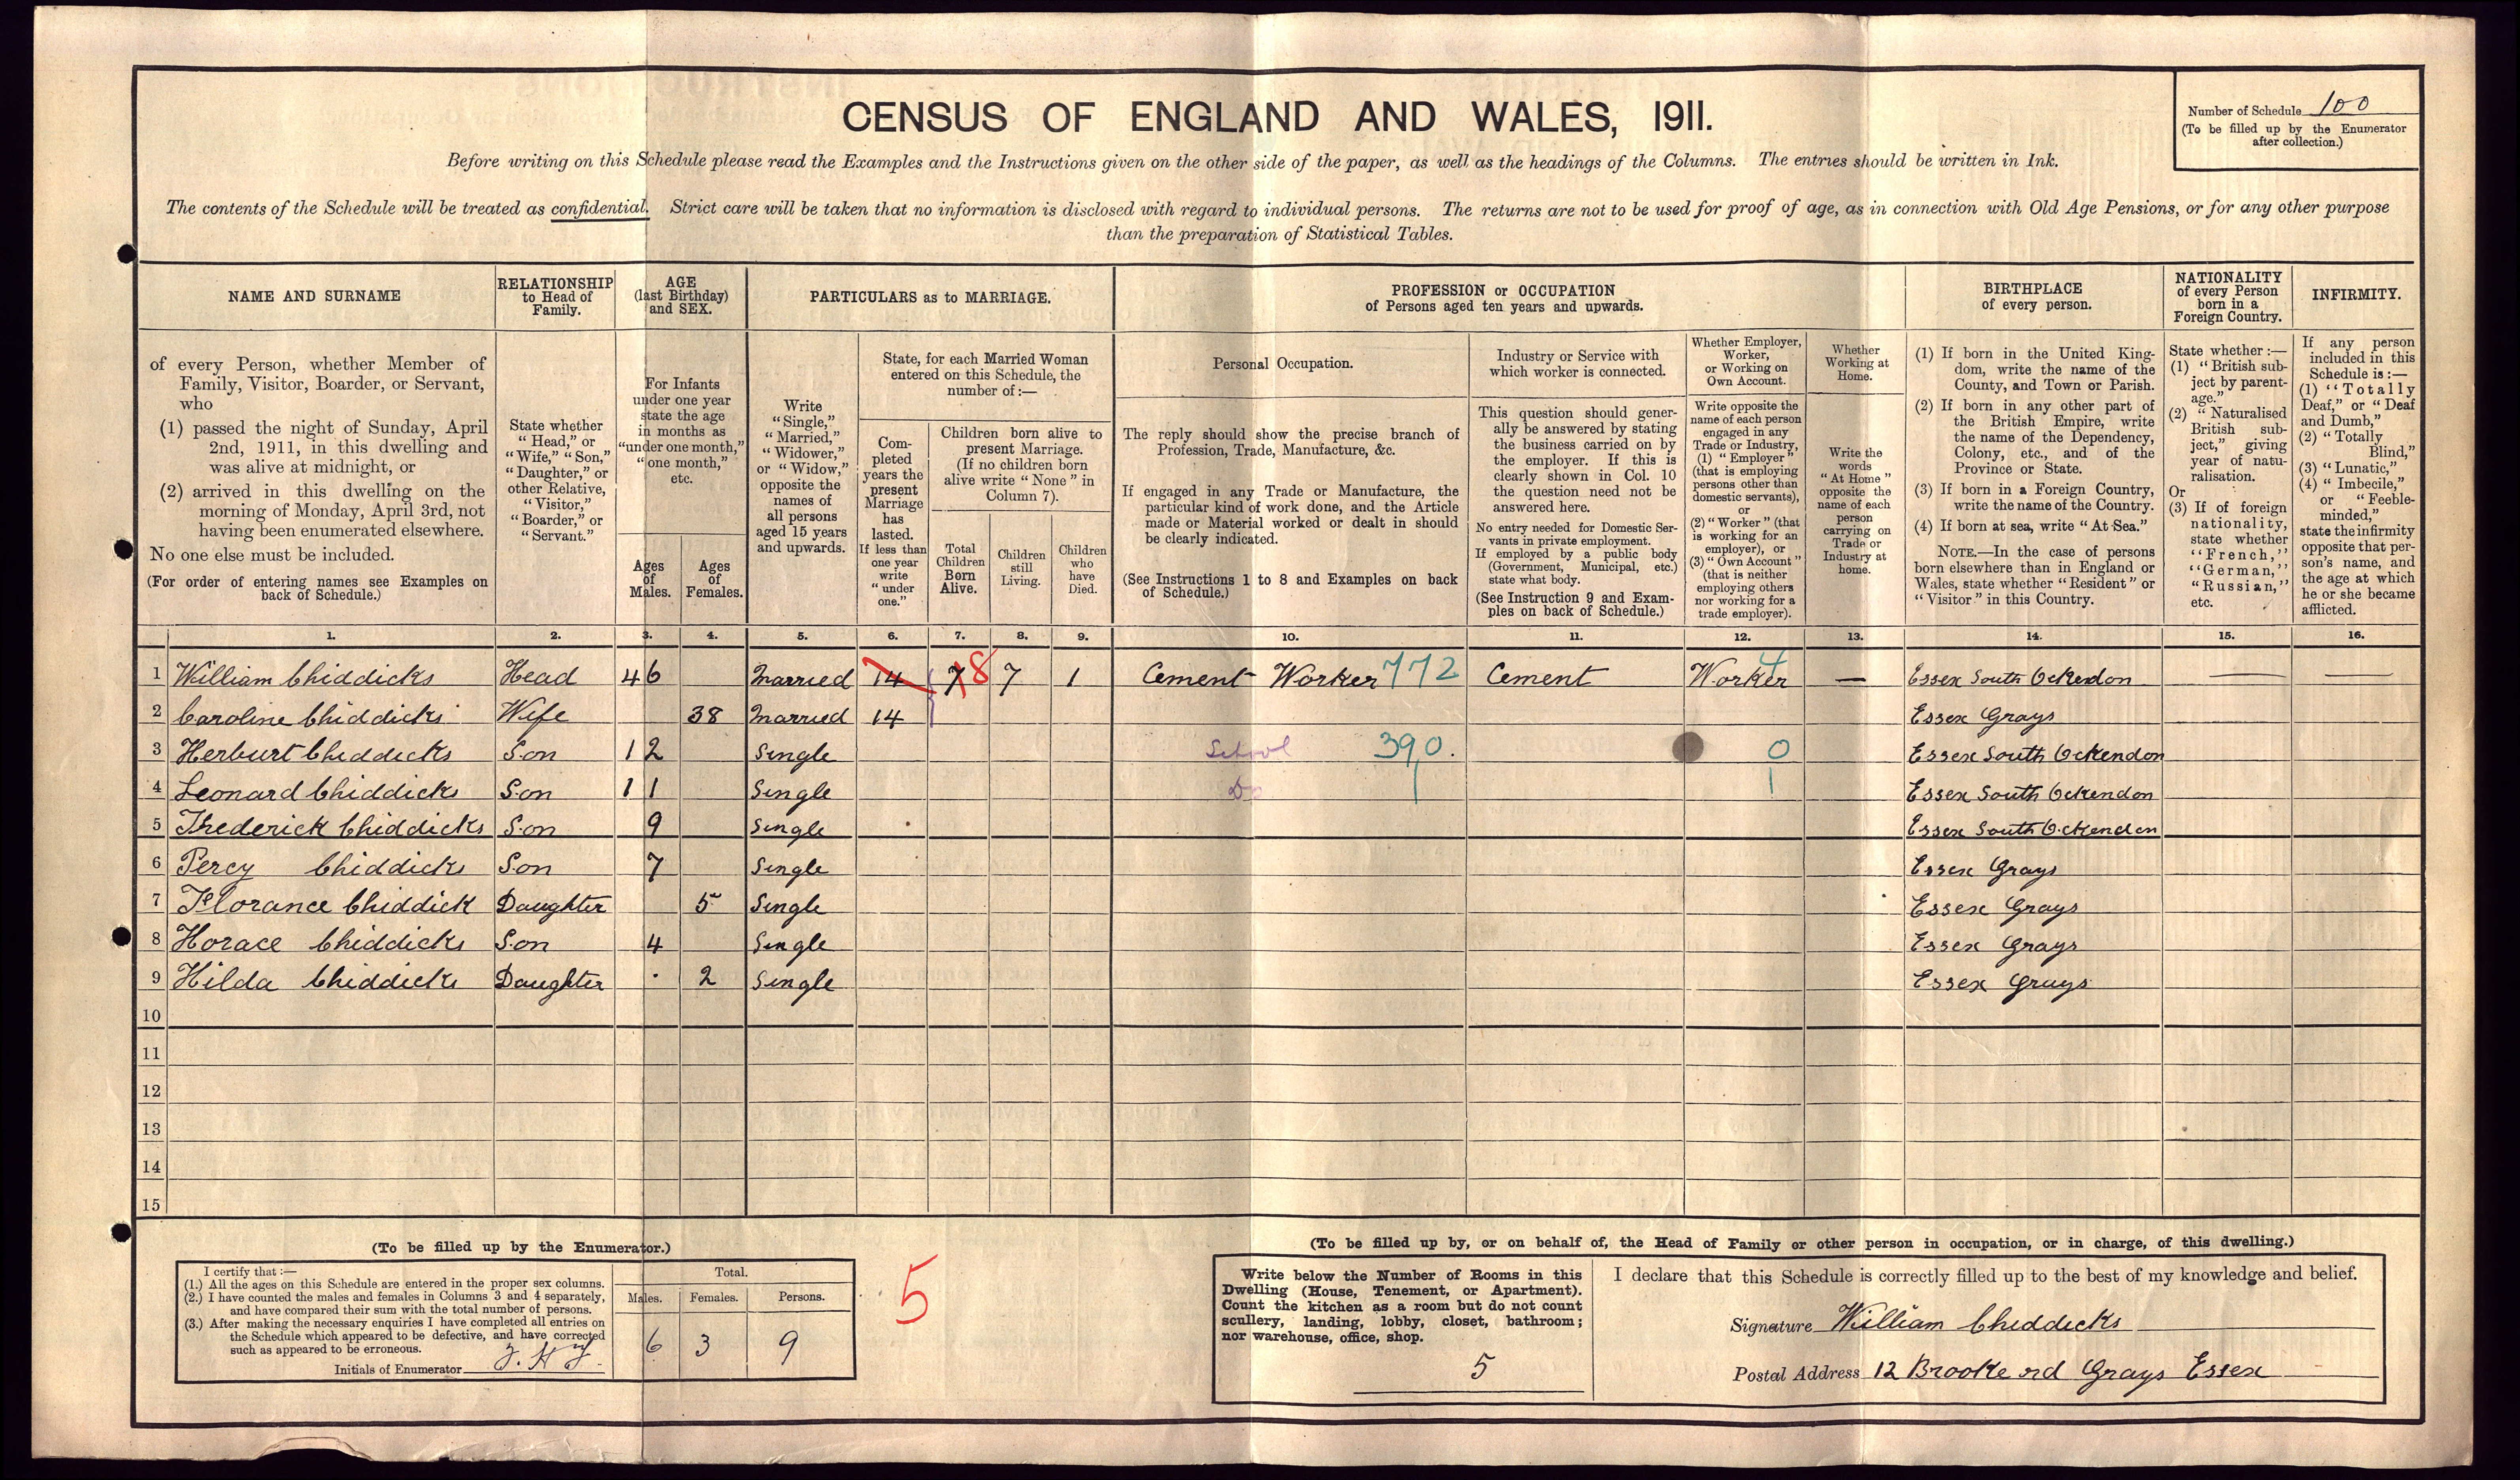 CENSUS OF ENGLAND AND WALES, 1911.
Number of Schedule 100
(To be filled up by the Enumerator
after collection.)
Before writing on this Schedule please read the Examples and the Instructions given on the other side of the paper, as well as the headings of the Columns. The entries should be written in Ink.
The contents of the Schedule will be treated as confidential. Strict care will be taken that no information is disclosed with regard to individual persons. The returns are not to be used for proof of age, as in connection with Old Age Pensions, or for any other purpose
than the preparation of Statistical Tables.
NAME AND SURNAME
of every Person, whether Member of
Family, Visitor, Boarder, or Servant,
who
(1) passed the night of Sunday, April
2nd, 1911, in this dwelling and
was alive at midnight, or
(2) arrived in this dwelling on the
morning of Monday, April 3rd, not
having been enumerated elsewhere.
No one else must be included.
(For order of entering names see Examples on
back of Schedule.)
RELATIONSHIP
to Head of
Family.
State whether
"Head," or
"Wife," "Son,"
"Daughter," or
other Relative,
"Visitor,"
"Boarder," or
"Servant."
AGE
(last Birthday)
and SEX.
For Infants
under one year
state the age
in months as
"under one month,"
"one month,"
etc.
Ages
of
Males.
Ages
of
Females.
PARTICULARS as to MARRIAGE.
Write
"Single,"
"Married,"
"Widower,"
or "Widow,"
opposite the
names of
all persons
aged 15 years
and upwards.
State, for each Married Woman
entered on this Schedule, the
number of:—
Com-
pleted
years the
present
Marriage
has
lasted.
If less than
one year
write
"under
one."
Children born alive to
present Marriage.
(If no children born
alive write "None" in
Column 7).
Total
Children
Born
Alive.
Children
still
Living.
Children
who
have
Died.
PROFESSION or OCCUPATION
of Persons aged ten years and upwards.
Personal Occupation.
The reply should show the precise branch of
Profession, Trade, Manufacture, &c.
If engaged in any Trade or Manufacture, the
particular kind of work done, and the Article
made or Material worked or dealt in should
be clearly indicated.
(See Instructions 1 to 8 and Examples on back
of Schedule.)
Industry or Service with
which worker is connected.
This question should gener-
ally be answered by stating
the business carried on by
the employer. If this is
clearly shown in Col. 10
the question need not be
answered here.
No entry needed for Domestic Ser-
vants in private employment.
If employed by a public body
(Government, Municipal, etc.)
state what body.
(See Instruction 9 and Exam-
ples on back of Schedule.)
Whether Employer,
Worker,
or Working on
Own Account.
Write opposite the
name of each person
engaged in any
Trade or Industry,
(1) "Employer"
(that is employing
persons other than
domestic servants),
or
(2) "Worker" (that
is working for an
employer), or
(3) "Own Account"
(that is neither
employing others
nor working for a
trade employer).
Whether
Working at
Home.
Write the
words
"At Home"
opposite the
name of each
person
carrying on
Trade or
Industry at
home.
BIRTHPLACE
of every person.
(1) If born in the United King-
dom, write the name of the
County, and Town or Parish.
(2) If born in any other part of
the British Empire, write
the name of the Dependency,
Colony, etc., and of the
Province or State.
(3) If born in a Foreign Country,
write the name of the Country.
(4) If born at sea, write "At Sea."
NOTE.—In the case of persons
born elsewhere than in England or
Wales, state whether "Resident" or
"Visitor" in this Country.
NATIONALITY
of every Person
born in a
Foreign Country.
State whether:—
(1) "British sub-
ject by parent-
age."
(2) "Naturalised
British sub-
ject," giving
year of natu-
ralisation.
Or
(3) If of foreign
nationality,
state whether
"French,"
"German,"
"Russian,"
etc.
INFIRMITY.
If any person
included in this
Schedule is:—
(1) "Totally
Deaf," or "Deaf
and Dumb,"
(2) "Totally
Blind,"
(3) "Lunatic,"
(4) "Imbecile,"
or "Feeble-
minded,"
state the infirmity
opposite that per-
son's name, and
the age at which
he or she became
afflicted.
1. 2. 3. 4. 5. 6. 7. 8. 9. 10. 11. 12. 13. 14. 15. 16.
1 William Chiddicks Head 46 Married 14 7 8 7 1 Cement Worker 772 Cement Worker 4 — Essex South Ockendon — —
2 Caroline Chiddicks Wife 38 Married 14 Essex Grays
3 Herburt Chiddicks Son 12 Single School 390. 0 Essex South Ockendon
4 Leonard Chiddicks Son 11 Single Do Essex South Ockendon
5 Frederick Chiddicks Son 9 Single Essex South Ockendon
6 Percy Chiddicks Son 7 Single Essex Grays
7 Florance Chiddick Daughter 5 Single Essex Grays
8 Horace Chiddicks Son 4 Single Essex Grays
9 Hilda Chiddicks Daughter 2 Single Essex Grays
10
11
12
13
14
15
(To be filled up by the Enumerator.)
I certify that:—
(1.) All the ages on this Schedule are entered in the proper sex columns.
(2.) I have counted the males and females in Columns 3 and 4 separately,
and have compared their sum with the total number of persons.
(3.) After making the necessary enquiries I have completed all entries on
the Schedule which appeared to be defective, and have corrected
such as appeared to be erroneous.
Initials of Enumerator
Total.
Males. Females. Persons.
6 3 9
5
(To be filled up by, or on behalf of, the Head of Family or other person in occupation, or in charge, of this dwelling.)
Write below the Number of Rooms in this
Dwelling (House, Tenement, or Apartment).
Count the kitchen as a room but do not count
scullery, landing, lobby, closet, bathroom;
nor warehouse, office, shop.
5
I declare that this Schedule is correctly filled up to the best of my knowledge and belief.
Signature William Chiddicks
Postal Address 12 Brooke rd Grays Essex